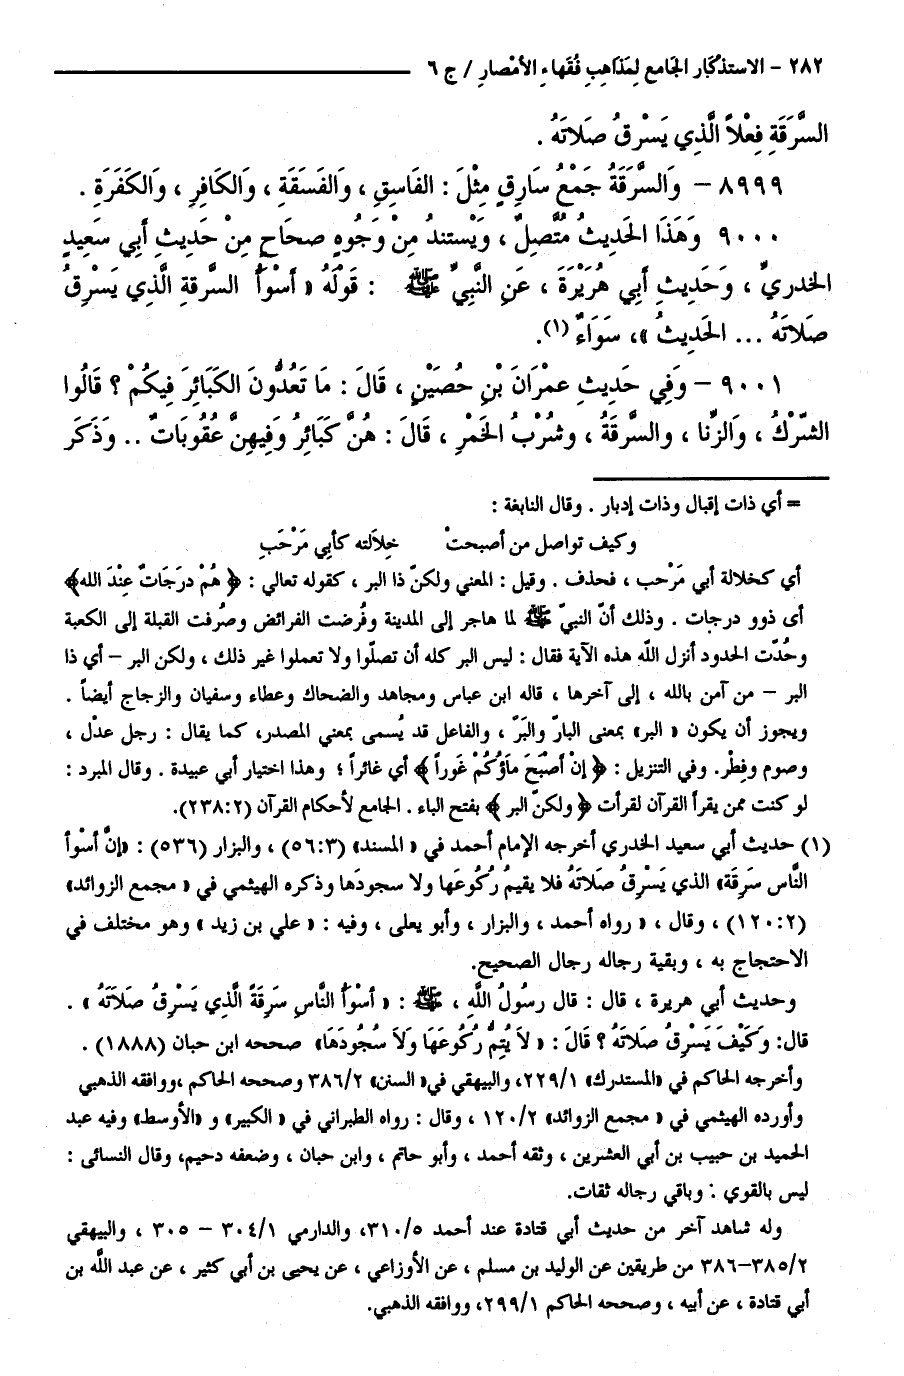 ٢٨٢ - الاستذكار الجامع لِمَذَاهِبِ فُقَهاءِ الأمْصارِ / ج ٦
السَّرَقَةِ فِعْلاً الَّذِي يَسْرِقُ صَلَاتَهُ .
٨٩٩٩ - وَالسَّرَقَةُ جَمْعُ سَارِقٍ مِثْلَ : الفَاسِقِ ، وَالفَسَقَةِ ، وَالكَافِرِ ، وَالكَفَرَةِ .
٩٠٠٠ وَهَذَا الحَدِيثُ مُتَّصِلٌ ، وَيَسْتَنِدُ مِنْ وَجُوهٍ صحَاحٍ مِنْ حَدِيثِ أَبِي سَعِيدٍ
الخدريِّ ، وَحَدِيثِ أَبِي هُرَيْرَةَ ، عَنِ النَّبِيِّ ﷺ : قَوْلُهُ « أَسْوَأُ السَّرقةِ الَّذِي يَسْرِقُ
صَلَاتَهُ ... الحَدِيثُ »، سَوَاءٌ (١).
٩٠٠١ - وَفِي حَدِيثِ عِمْرَانَ بْنِ حُصَيْنٍ ، قَالَ : مَا تَعُدُّونَ الكَبَائِرَ فِيكُمْ ؟ قَالُوا
الشِّرْكُ ، وَالزِّنا ، والسَّرقَةُ ، وشُرْبُ الخَمْرِ ، قَالَ : هُنَّ كَبَائِرُ وَفِيهِنَّ عُقُوبَاتٌ .. وَذَكَرَ
= أي ذات إقبال وذات إدبار . وقال النابغة :
وكيف تواصل من أصبحتْ خِلالَته كأبي مَرْحَبِ
أي كخلالة أبي مَرْحب ، فحذف . وقيل : المعني ولكنّ ذا البر ، كقوله تعالي : ﴿ هُمْ دَرَجَاتٌ عِنْدَ الله ﴾
أى ذوو درجات . وذلك أنّ النبيّ ﷺ لما هاجر إلى المدينة وفُرضت الفرائض وصُرفت القبلة إلى الكعبة
وحُدّت الحدود أنزل اللّه هذه الآية فقال : ليس البر كله أن تصلّوا ولا تعملوا غير ذلك ، ولكن البر - أي ذا
البر - من آمن بالله ، إلى آخرها ، قاله ابن عباس ومجاهد والضحاك وعطاء وسفيان والزجاج أيضاً .
ويجوز أن يكون « البر» بمعنى البارّ والبَرّ ، والفاعل قد يُسمى بمعني المصدر، كما يقال : رجل عدْل ،
وصوم وفِطْر. وفي التنزيل : ﴿ إنْ أَصْبَحَ مَاؤُكُمْ غَوراً ﴾ أي غائراً ؛ وهذا اختيار أبي عبيدة . وقال المبرد :
لو كنت ممن يقرأ القرآن لقرأت ﴿ ولكنّ البر ﴾ بفتح الباء . الجامع لأحكام القرآن (٢٣٨:٢).
(١) حديث أبي سعيد الخدري أخرجه الإمام أحمد في « المسند» (٥٦:٣) ، والبزار (٥٣٦) : «إنَّ أسْوأَ
النَّاس سَرِقَة» الذي يَسْرِقُ صَلَاتَهُ فلا يقيمُ رُكُوعَها ولا سجودَها وذكره الهيثمي في « مجمع الزوائد»
(١٢٠:٢) ، وقال ، « رواه أحمد ، والبزار ، وأبو يعلى ، وفيه : « علي بن زيد » وهو مختلف في
الاحتجاج به ، وبقية رجاله رجال الصحيح.
وحديث أبي هريرة ، قال : قال رسُولُ اللَّهِ ، ﷺ : « أسْوَأُ النَّاسِ سَرِقَةً الَّذِي يَسْرِقُ صَلَاتَهُ » .
قال: وَكَيْفَ يَسْرِقُ صَلَاتَهُ ؟ قَالَ : « لَا يُتِمُّ رُكُوعَهَا وَلَا سُجُودَهَا» صححه ابن حبان (١٨٨٨) .
وأخرجه الحاكم في «المستدرك» ٢٢٩/١، والبيهقي في« السنن» ٣٨٦/٢ وصححه الحاكم ،ووافقه الذهبي
وأورده الهيثمي في « مجمع الزوائد» ١٢٠/٢ ، وقال : رواه الطبراني في « الكبير» و «الأوسط» وفيه عبد
الحميد بن حبيب بن أبي العشرين ، وثقه أحمد ، وأبو حاتم ، وابن حبان ، وضعفه دحيم، وقال النسائى :
ليس بالقوي : وباقي رجاله ثقات.
وله شاهد آخر من حديث أبي قتادة عند أحمد ٣١٠/٥، والدارمي ٣٠٤/١ - ٣٠٥ ، والبيهقي
٣٨٥/٢-٣٨٦ من طريقين عن الوليد بن مسلم ، عن الأوزاعي ، عن يحيى بن أبي كثير ، عن عبد اللَّه بن
أبي قتادة ، عن أبيه ، وصححه الحاكم ٢٩٩/١، ووافقه الذهبي.